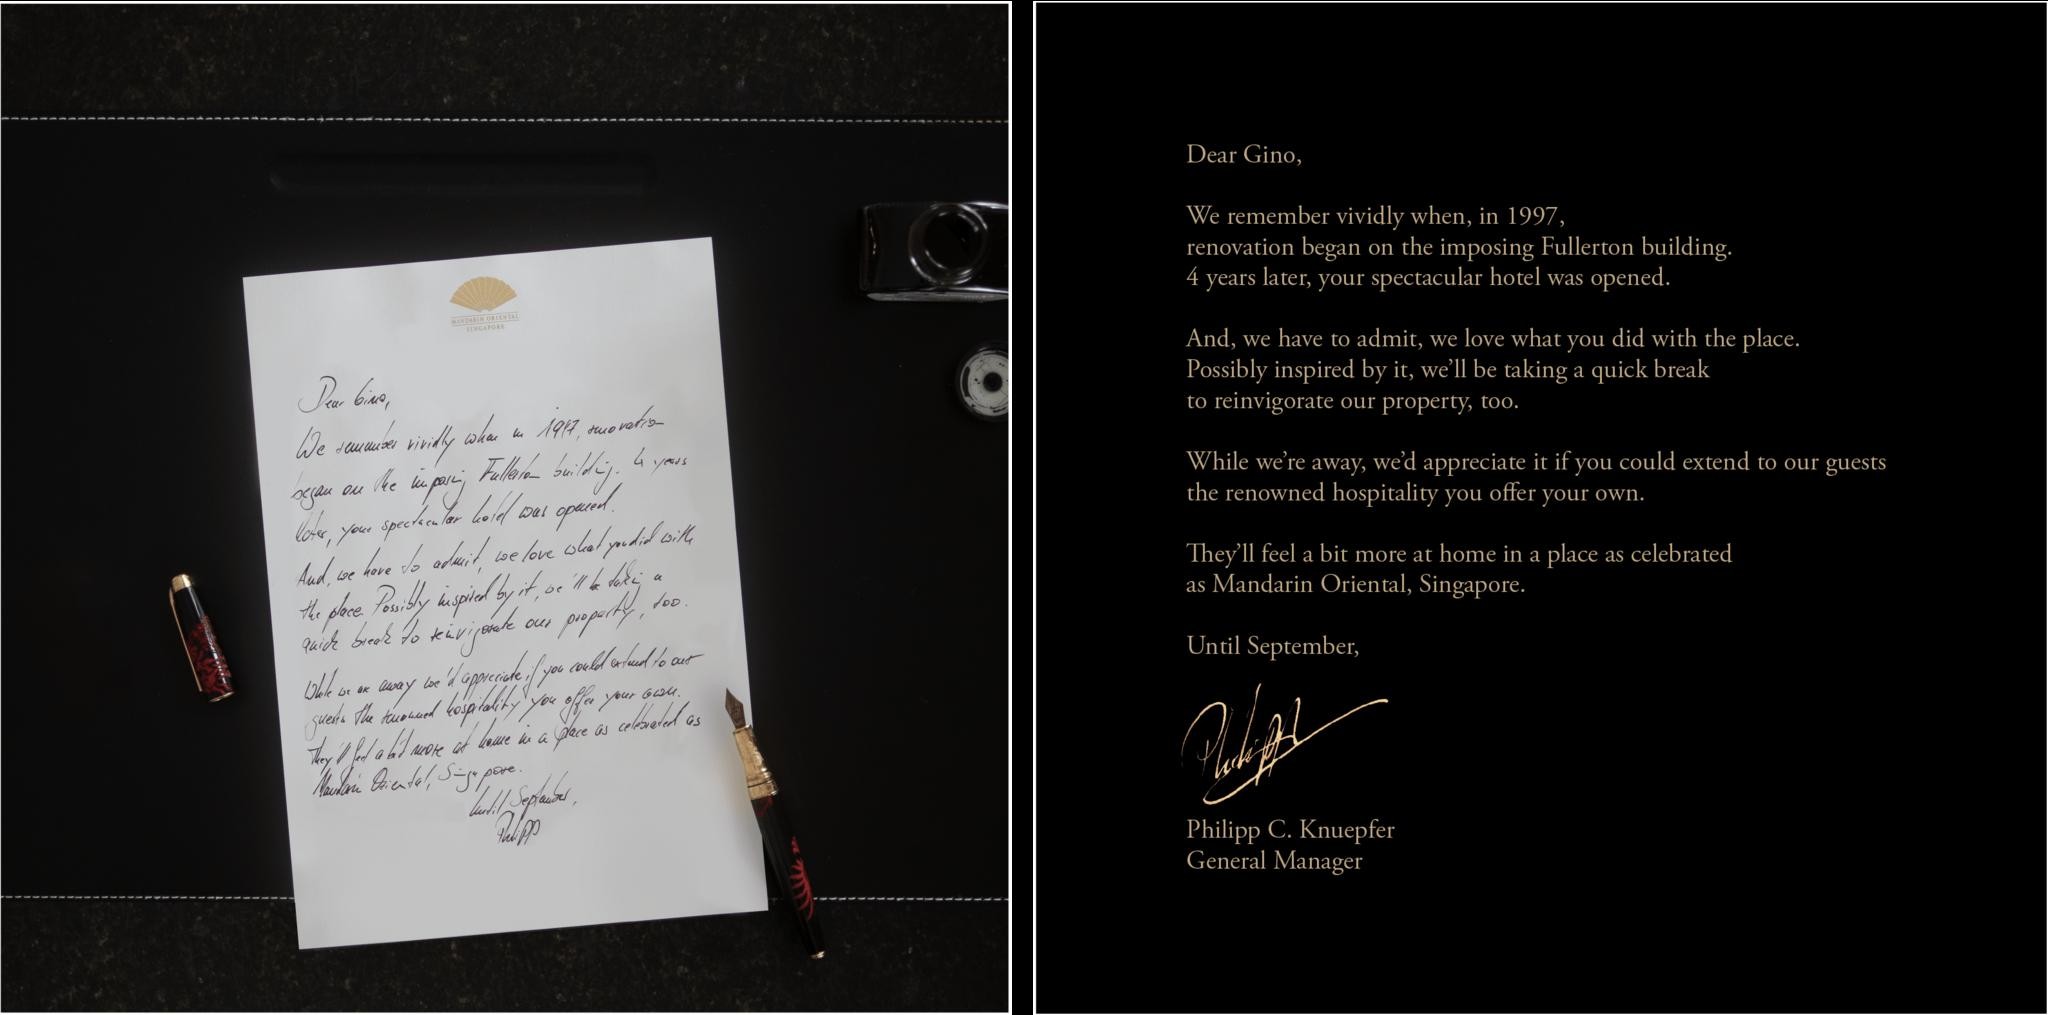 MANDARIN ORIENTAL
SINGAPORE
Dear Gino,
We remember vividly when in 1997, renovation
began on the imposing Fullerton building. 4 years
later, your spectacular hotel was opened.
And, we have to admit, we love what you did with
the place. Possibly inspired by it, we'll be taking a
quick break to reinvigorate our property, too.
While we are away we'd appreciate, if you could extend to our
guests the renowned hospitality you offer your own.
They'll feel a bit more at home in a place as celebrated as
Mandarin Oriental, Singapore.
Until September,
Philipp
Dear Gino,
We remember vividly when, in 1997,
renovation began on the imposing Fullerton building.
4 years later, your spectacular hotel was opened.
And, we have to admit, we love what you did with the place.
Possibly inspired by it, we’ll be taking a quick break
to reinvigorate our property, too.
While we’re away, we’d appreciate it if you could extend to our guests
the renowned hospitality you offer your own.
They’ll feel a bit more at home in a place as celebrated
as Mandarin Oriental, Singapore.
Until September,
Philipp
Philipp C. Knuepfer
General Manager